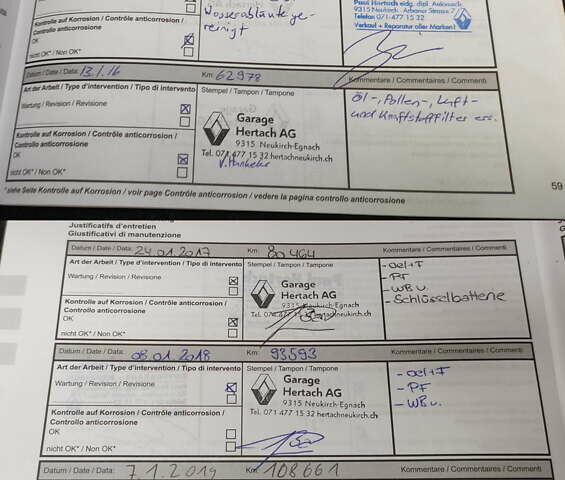 Kontrolle auf Korrosion / Contrôle anticorrosion /
Controllo anticorrosione
OK
nicht OK* / Non OK*
Wasserabläufe ge-
reinigt
Paul Hertach eidg. dipl. Automech.
9315 Neukirch Arboner Strasse 7
Telefon 071-477 15 32
Verkauf + Reparatur aller Marken
Datum / Date / Data: 13.1.16 Km: 62978 Kommentare / Commentaires / Commenti
Art der Arbeit / Type d'intervention / Tipo di intervento Stempel / Tampon / Tampone
Wartung / Revision / Revisione
Kontrolle auf Korrosion / Contrôle anticorrosion/
Controllo anticorrosione
OK
nicht OK* / Non OK*
Garage
Hertach AG
9315 Neukirch-Egnach
Tel. 071 477 15 32 hertachneukirch.ch
Öl-, Pollen-, Luft-
und Kraftstofffilter ers.
*siehe Seite Kontrolle auf Korrosion / voir page Contrôle anticorrosion / vedere la pagina controllo anticorrosione
59
Justificatifs d'entretien
Giustificativi di manutenzione
Datum / Date / Data: 24.01.2017 Km: 80464 Kommentare / Commentaires / Commenti
Art der Arbeit / Type d'intervention / Tipo di intervento Stempel / Tampon / Tampone
Wartung / Revision / Revisione
Kontrolle auf Korrosion / Contrôle anticorrosion /
Controllo anticorrosione
OK
nicht OK* / Non OK*
Garage
Hertach AG
9315 Neukirch-Egnach
Tel. 071 477 15 32 hertachneukirch.ch
- Oel+F
- PF
- WBu.
- Schlüsselbatterie
Datum / Date / Data: 08.01.2018 Km: 93593 Kommentare / Commentaires / Commenti
Art der Arbeit / Type d'intervention / Tipo di intervento Stempel / Tampon / Tampone
Wartung / Revision / Revisione
Kontrolle auf Korrosion / Contrôle anticorrosion /
Controllo anticorrosione
OK
nicht OK* / Non OK*
Garage
Hertach AG
9315 Neukirch-Egnach
Tel. 071 477 15 32 hertachneukirch.ch
- oel+F
- PF
- WBu.
Datum / Date / Data: 7.1.2019 Km: 108661 Kommentare / Commentaires / Commenti